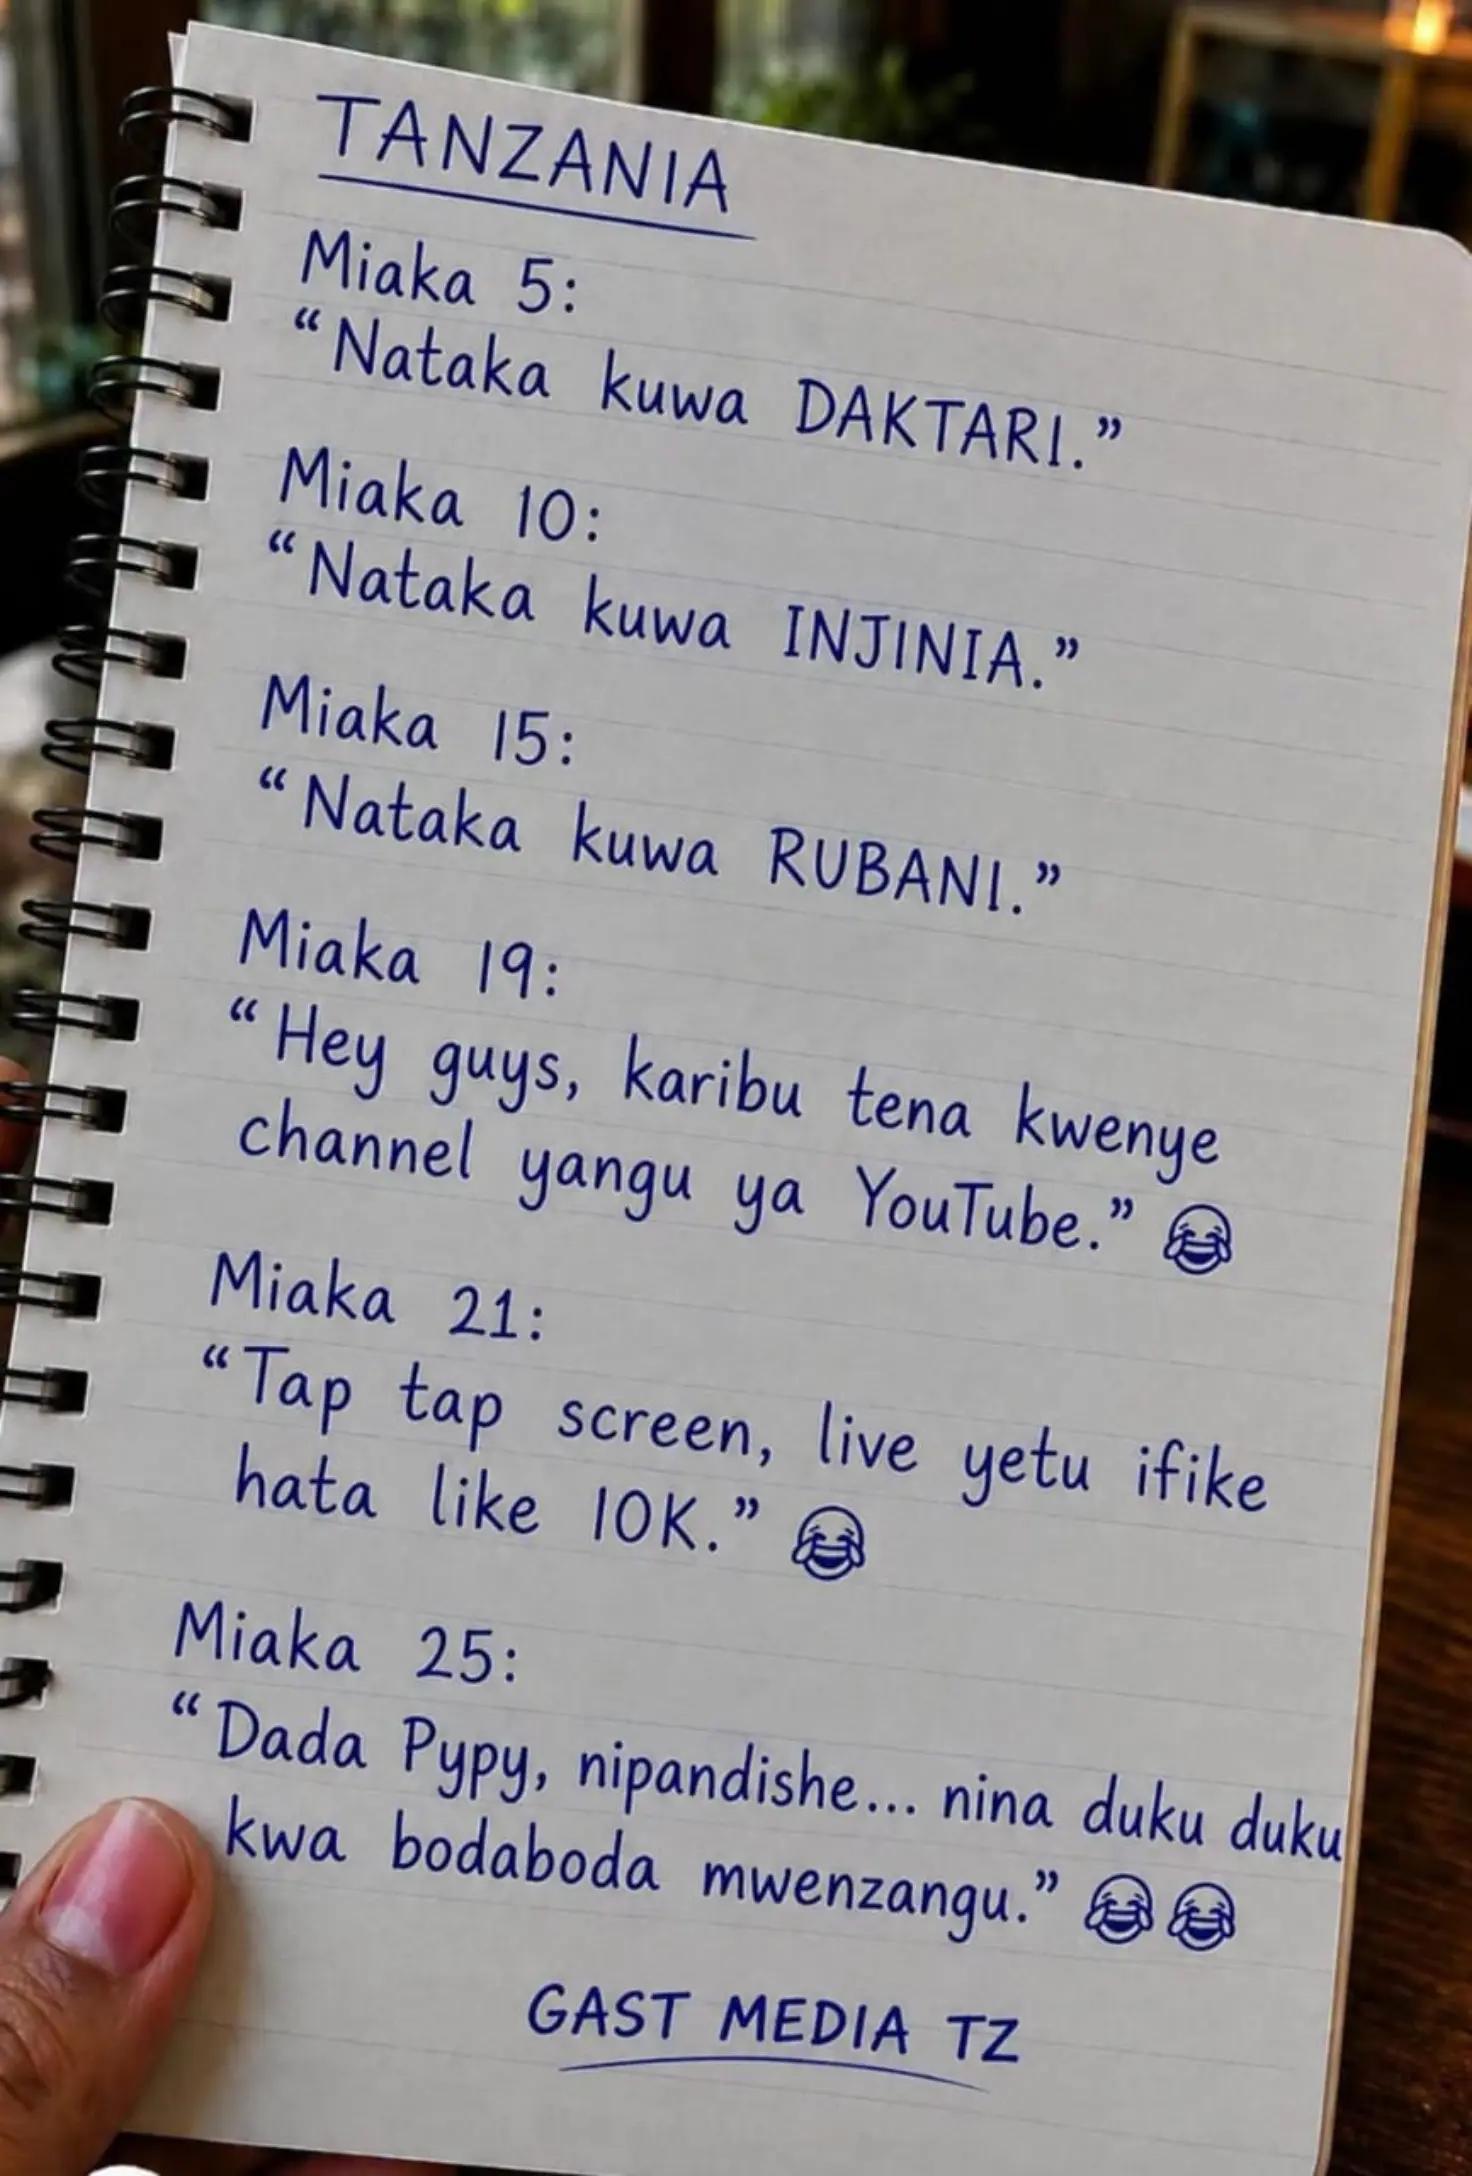 TANZANIA
Miaka 5:
“Nataka kuwa DAKTARI.”
Miaka 10:
“Nataka kuwa INJINIA.”
Miaka 15:
“Nataka kuwa RUBANI.”
Miaka 19:
“Hey guys, karibu tena kwenye
channel yangu ya YouTube.” 😂
Miaka 21:
“Tap tap screen, live yetu ifike
hata like 10K.” 😂
Miaka 25:
“Dada Pypy, nipandishe... nina duku duku
kwa bodaboda mwenzangu.” 😂😂
GAST MEDIA TZ